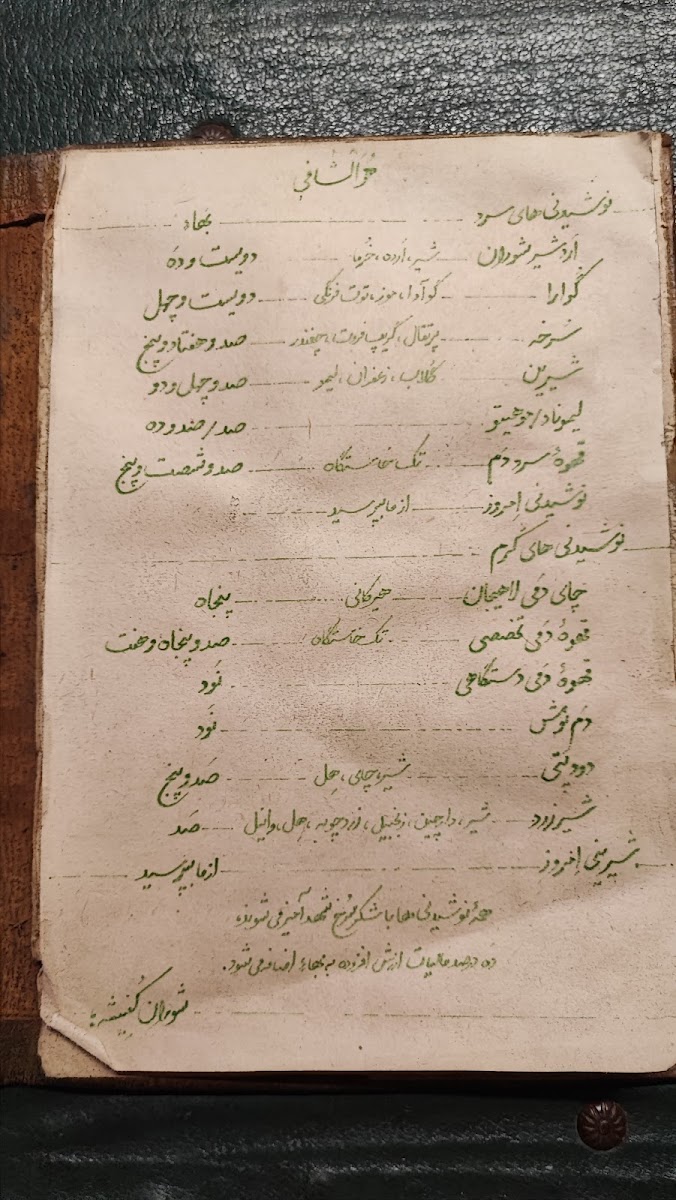 هُوَ الشافی
نوشیدنی‌های سرد بهاء
اَردشیر شوران شیر، اَرده، خُرما دویست و دَه
گُوارا گوآوا، موز، توت فرنگی دویست و چهل
سُرخه پرتقال، گریپ فروت، چغندر صد و هفتاد و پنج
شیرین گلاب، زعفران، لیمو صد و چهل و دو
لیموناد/موهیتو صد/صد و ده
قهوهٔ سرد دَم تک خاستگاه صد و شصت و پنج
نوشیدنی اِمروز از ما بپرسید
نوشیدنی های گرم
چای دَمی لاهیجان هیرکانی پنجاه
قهوهٔ دَمی تخصصی تک خاستگاه صد و پنجاه و هفت
قهوهٔ دَمی دستگاهی نَوَد
دَم نوش نَوَد
دودپَتی شیر، چای، هِل صَد و پنج
شیر زرد شیر، دارچین، زنجبیل، زردچوبه، هِل، وانیل صَد
شیرینی اِمروز از ما بپرسید
همهٔ نوشیدنی‌ها با شکر سُرخ شهد آمیز می شوند،
ده درصد مالیات ارزش افزوده به بهاء اضافه می شود.
شوران